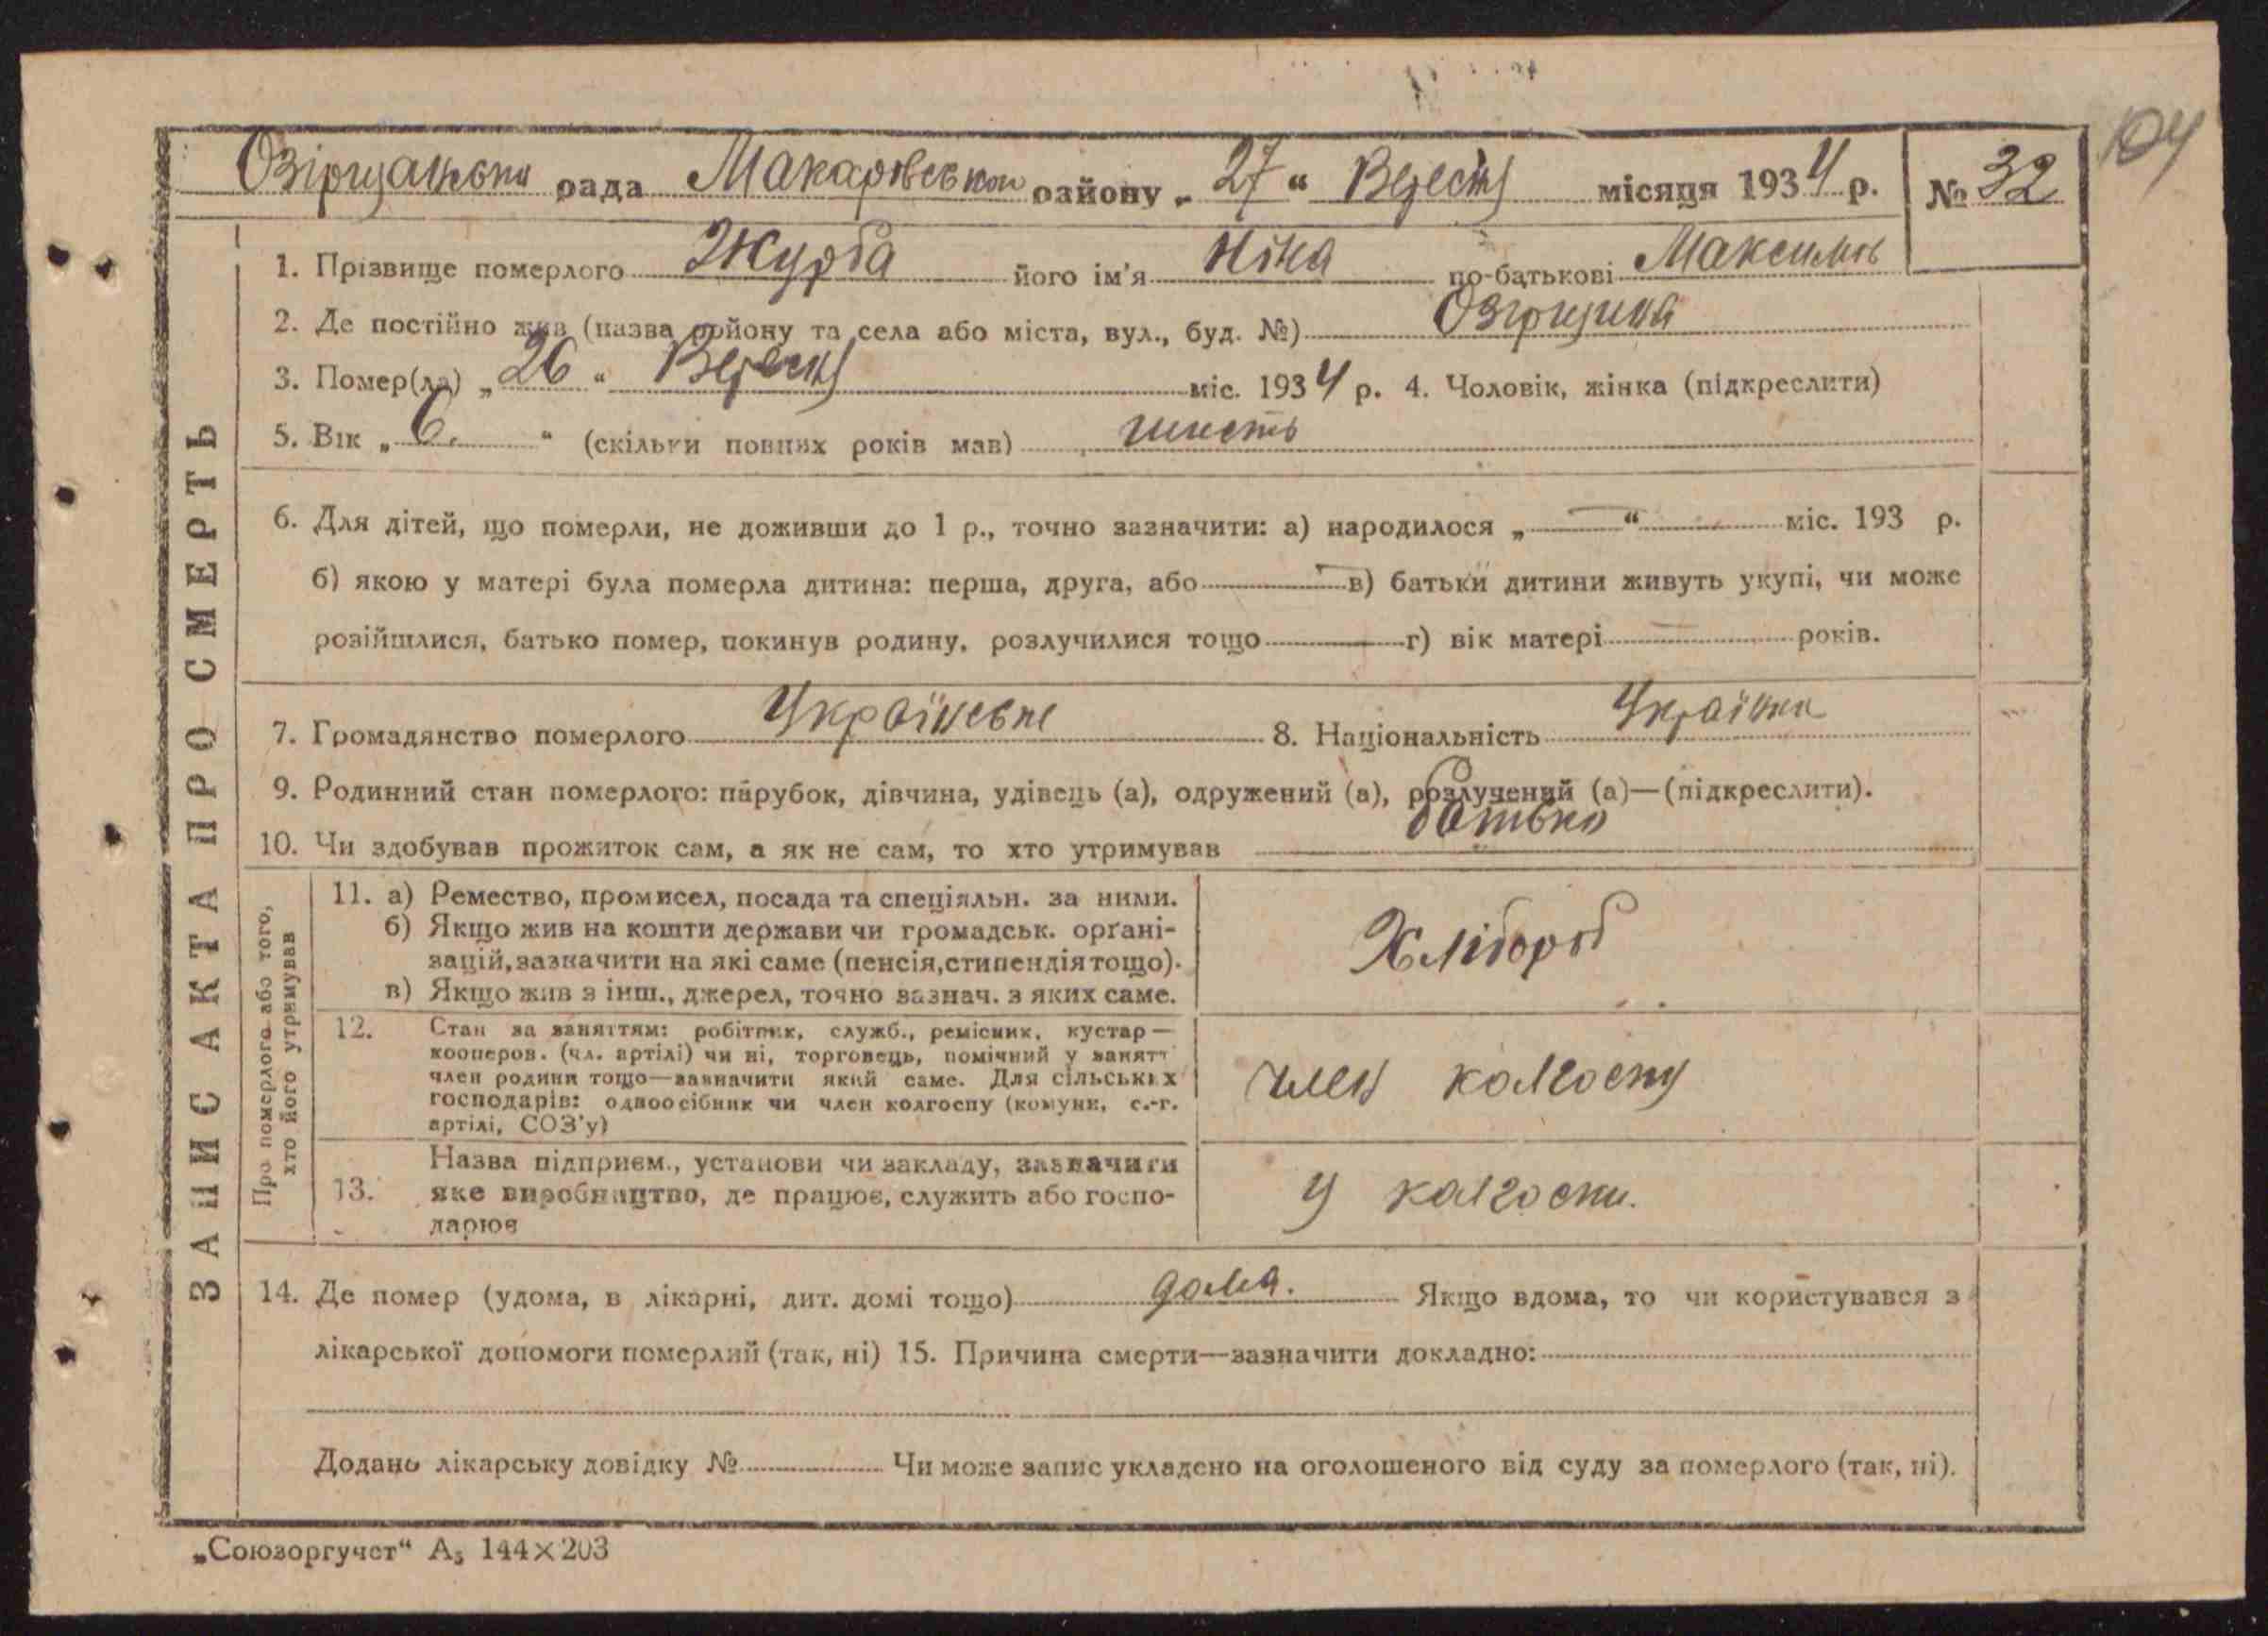 104
Озірщанська рада Макарівської району „27“ Вересня місяця 1934 р. № 32
ЗАПИС АКТА ПРО СМЕРТЬ
1. Прізвище померлого Журба його ім'я Ніна по-батькові Максимів
2. Де постійно жив (назва району та села або міста, вул., буд. №) Озірщина
3. Помер(ла) „26“ Вересня міс. 1934 р. 4. Чоловік, жінка (підкреслити)
5. Вік „6.“ (скільки повних років мав) шість
6. Для дітей, що померли, не доживши до 1 р., точно зазначити: а) народилося „—“ міс. 193 р.
б) якою у матері була померла дитина: перша, друга, або — в) батьки дитини живуть укупі, чи може
розійшлися, батько помер, покинув родину, розлучилися тощо — г) вік матері — років.
7. Громадянство померлого Українське 8. Національність Українка
9. Родинний стан померлого: парубок, дівчина, удівець (а), одружений (а), розлучений (а)—(підкреслити).
10. Чи здобував прожиток сам, а як не сам, то хто утримував батько
Про померлого або того,
хто його утримував
11. а) Ремество, промисел, посада та спеціяльн. за ними.
б) Якщо жив на кошти держави чи громадськ. орґані-
зацій, зазначити на які саме (пенсія, стипендія тощо).
в) Якщо жив з інш., джерел, точно зазнач. з яких саме.
Хлібороб
12. Стан за заняттям: робітник, служб., ремісник, кустар —
кооперов. (чл. артілі) чи ні, торговець, помічний у занятт
член родини тощо—зазначити який саме. Для сільських
господарів: одноосібник чи член колгоспу (комуни, с.-г.
артілі, СОЗ'у)
член колгоспу
13. Назва підприєм., установи чи закладу, зазначити
яке виробництво, де працює, служить або госпо-
дарює
У колгоспи.
14. Де помер (удома, в лікарні, дит. домі тощо) дома. Якщо вдома, то чи користувався з
лікарської допомоги померлий (так, ні) 15. Причина смерти—зазначити докладно:
Додано лікарську довідку № Чи може запис укладено на оголошеного від суду за померлого (так, ні).
„Союзоргучет“ А₅ 144×203